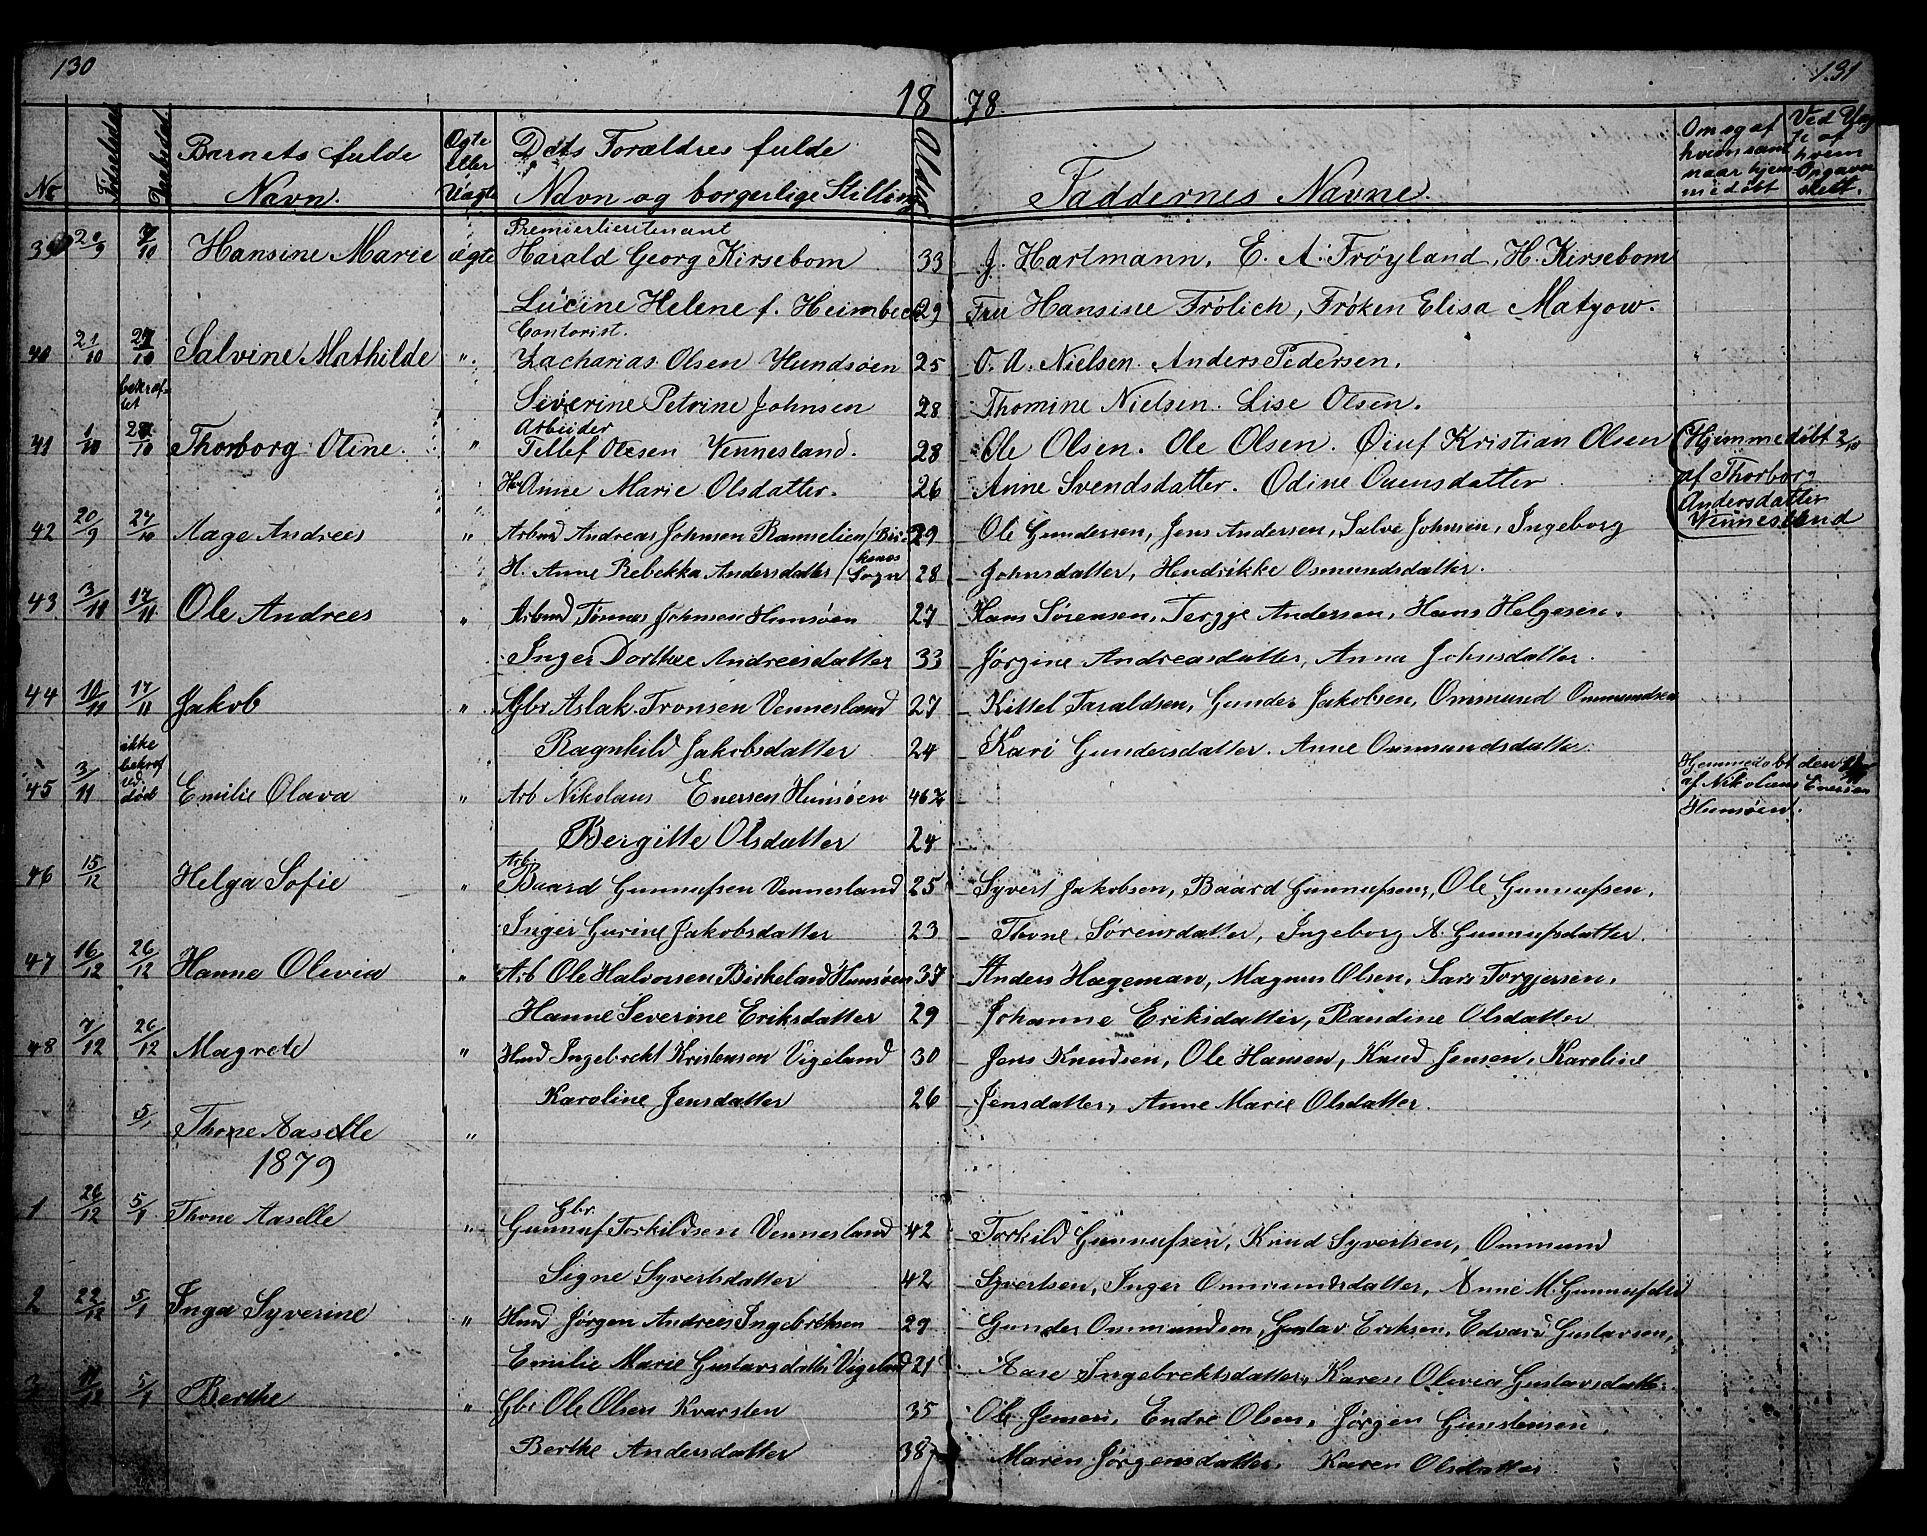 130
131
18 78.
No
Fødselsdat
Daabsdat
Barnets fulde Navn.
Ægte eller Uægte
Dets Forældres fulde Navn og borgerlige Stilling
Alder
Faddernes Navne.
Om og af hvem samt naar hjemmedøbt
Ved
af hvem
39 20/9 7/10 Hansine Marie ægte Premierlieutenant Harald Georg Kirsebom 33 J. Hartmann, E. A. Frøyland, H. Kirsebom
Lucine Helene f. Heimbeck 29 Fru Hansine Frölich, Frøken Elisa Matyow.
40 21/10 27/10 Salvine Mathilde " Contorist. Zacharias Olsen Hundsøen 25 O. A. Nielsen. Anders Pedersen.
Siverine Petrine Johnsen 28 Thomine Nielsen. Lise Olsen.
41 1/10 bekræftet 27/10 Thorborg Oline. " Arbeider Tellef Olsen Vennesland. 28 Ole Olsen. Ole Olsen. Kristian Olsen Hjemmedøbt 2/10
H. Anne Marie Olsdatter. 26 Anne Svendsdatter. Odine Ouensdatter af Thorbor Andersdatter Vennesland
42 20/9 27/10 Aage Andrees " Arbmd Andreas Johnsen Ramselien / Birkenes 29 Ole Gundersen, Jens Andersen, Salve Johnsen, Ingeborg
H. Anne Rebekka Andersdatter / Sogn 28 Johnsdatter, Hendrikke Osmundsdatter.
43 3/11 17/11 Ole Andrees " Arbmd Tønnes Johnsen Hunsøen 27 Hans Sørensen, Tergje Andersen, Hans Helgesen.
Inger Dorthee Andreesdatter 33 Jørgine Andreasdatter, Anna Johnsdatter.
44 10/11 17/11 Jakob " Gbr Aslak Tronsen Vennesland 27 Kittel Taraldsen, Gunder Jakobsen, Ommund Ommundsen
Ragnhild Jakobsdatter 24 Kari Gundersdatter. Anne Ommundsdatter.
45 3/11 ikke bekræf død Emilie Olava " Arb Nikolaus Enersen Hunsøen 46 Hjemmedøbt den
af Nikolaus Enersen
Hunsøen.
Bergitte Olsdatter 24
46 15/12 Helga Sofie " Arb. Baard Gunnufsen Vennesland 25 Syvert Jakobsen, Baard Gunnufsen, Ole Gunnufsen,
Inger Gurine Jakobsdatter 23 Thone Sørensdatter, Ingeborg A. Gunnufsdatter.
47 16/12 26/12 Hanne Olivia " Arb Ole Halvorsen Birkeland Hunsøen 37 Anders Hageman, Magnus Olsen, Lars Torgjersen,
Hanne Severine Eriksdatter 29 Johanne Eriksdatter, Randine Olsdatter
48 7/12 26/12 Magrete " Hmd Ingebrekt Kristensen Vigeland 30 Jens Knudsen, Ole Hansen, Knud Jensen, Karoline
Karoline Jensdatter 26 Jensdatter, Anne Marie Olsdatter.
5/1 Thone Aaselle "
1879
1 26/12 5/1 Thone Aaselle " Gbr. Gunnuf Torkildsen Vennesland 42 Torkild Gunnufsen, Knud Syvertsen, Ommund
Signe Syvertsdatter 42 Syvertsen, Inger Ommundsdatter, Anne M. Gunnufsdtr
2 22/12 5/1 Inga Syverine " Hmd Jørgen Andrees Ingebretsen 29 Gunder Ommundsen, Gustav Eriksen, Edvard Gustavsen,
Emilie Marie Gustavsdatter Vigeland 21 Aase Ingebrektsdatter, Karen Olivia Gustavsdatter.
3 17/12 5/1 Berthe " Gbr Ole Olsen Kvarsten 35 Ole Jensen, Endre Olsen, Jørgen Gunstensen,
Berthe Andersdatter 38 Maren Jørgensdatter. Karen Olsdatter